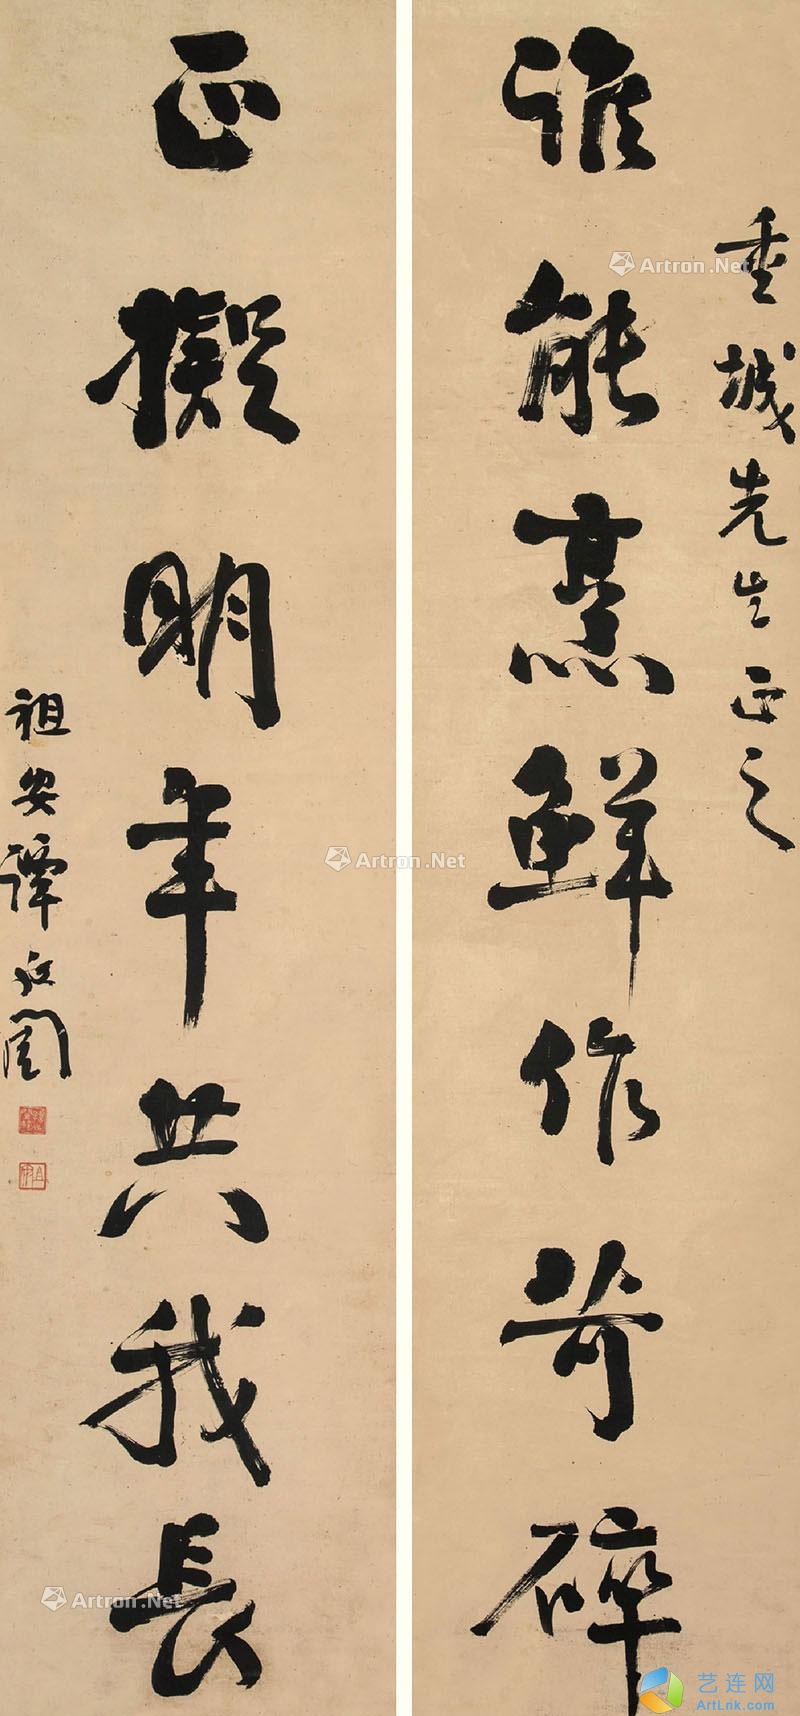 垂城先生正之
谁能烹鲜作苛碎
正擬明年共我長
祖安譚延闿
Artron.Net
Artron.Net
Artron.Net
Artron.Net
艺连网
ArtLnk.com